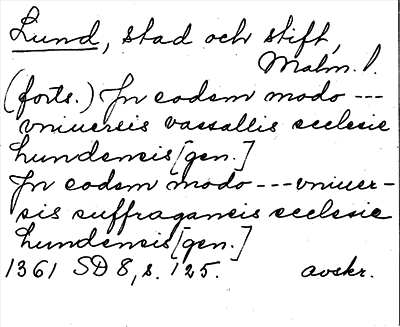 Lund, stad och stift,
Malm. l.
(forts.) Jn eodem modo ---
vniuersis vassallis ecclesie
lundensis [gen.]
Jn eodem modo --- vniuer-
sis suffraganeis ecclesie
lundensis [gen.]
1361 SD 8, s. 125. avskr.